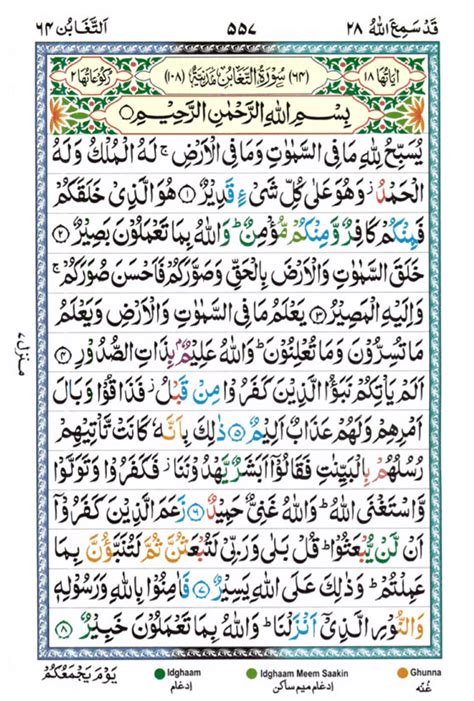 قَدْ سَمِعَ اللهُ ٢٨ ٥٥٧ اَلتَّغَابُن ٦٤
اٰیَاتُهَا ١٨ (٦٤) سُوْرَةُ التَّغَابُنِ مَدَنِیَّةٌ (١٠٨) رُكُوْعَاتُهَا ٢
بِسْمِ اللهِ الرَّحْمٰنِ الرَّحِیْمِ ○
یُسَبِّحُ لِلّٰهِ مَا فِی السَّمٰوٰتِ وَمَا فِی الْاَرْضِ ۚ لَهُ الْمُلْكُ وَلَهُ
الْحَمْدُ ؗ وَهُوَ عَلٰی كُلِّ شَیْءٍ قَدِیْرٌ ﴿١﴾ هُوَ الَّذِیْ خَلَقَكُمْ
فَمِنْكُمْ كَافِرٌ وَّمِنْكُمْ مُّؤْمِنٌ ؕ وَاللهُ بِمَا تَعْمَلُوْنَ بَصِیْرٌ ﴿٢﴾
خَلَقَ السَّمٰوٰتِ وَالْاَرْضَ بِالْحَقِّ وَصَوَّرَكُمْ فَاَحْسَنَ صُوَرَكُمْ ۚ
وَاِلَیْهِ الْمَصِیْرُ ﴿٣﴾ یَعْلَمُ مَا فِی السَّمٰوٰتِ وَالْاَرْضِ وَیَعْلَمُ
مَا تُسِرُّوْنَ وَمَا تُعْلِنُوْنَ ؕ وَاللهُ عَلِیْمٌۢ بِذَاتِ الصُّدُوْرِ ﴿٤﴾
اَلَمْ یَاْتِكُمْ نَبَؤُا الَّذِیْنَ كَفَرُوْا مِنْ قَبْلُ ؗ فَذَاقُوْا وَبَالَ
اَمْرِهِمْ وَلَهُمْ عَذَابٌ اَلِیْمٌ ﴿٥﴾ ذٰلِكَ بِاَنَّهٗ كَانَتْ تَّاْتِیْهِمْ
رُسُلُهُمْ بِالْبَیِّنٰتِ فَقَالُوْۤا اَبَشَرٌ یَّهْدُوْنَنَا ؗ فَكَفَرُوْا وَتَوَلَّوْا
وَّاسْتَغْنَی اللهُ ؕ وَاللهُ غَنِیٌّ حَمِیْدٌ ﴿٦﴾ زَعَمَ الَّذِیْنَ كَفَرُوْۤا
اَنْ لَّنْ یُّبْعَثُوْا ؕ قُلْ بَلٰی وَرَبِّیْ لَتُبْعَثُنَّ ثُمَّ لَتُنَبَّؤُنَّ بِمَا
عَمِلْتُمْ ؕ وَذٰلِكَ عَلَی اللهِ یَسِیْرٌ ﴿٧﴾ فَاٰمِنُوْا بِاللهِ وَرَسُوْلِهٖ
وَالنُّوْرِ الَّذِیْۤ اَنْزَلْنَا ؕ وَاللهُ بِمَا تَعْمَلُوْنَ خَبِیْرٌ ﴿٨﴾
منزل ٧
یَوْمَ یَجْمَعُكُمْ
Idghaam
ادغام
Idghaam Meem Saakin
ادغام میم ساكن
Ghunna
غنّه